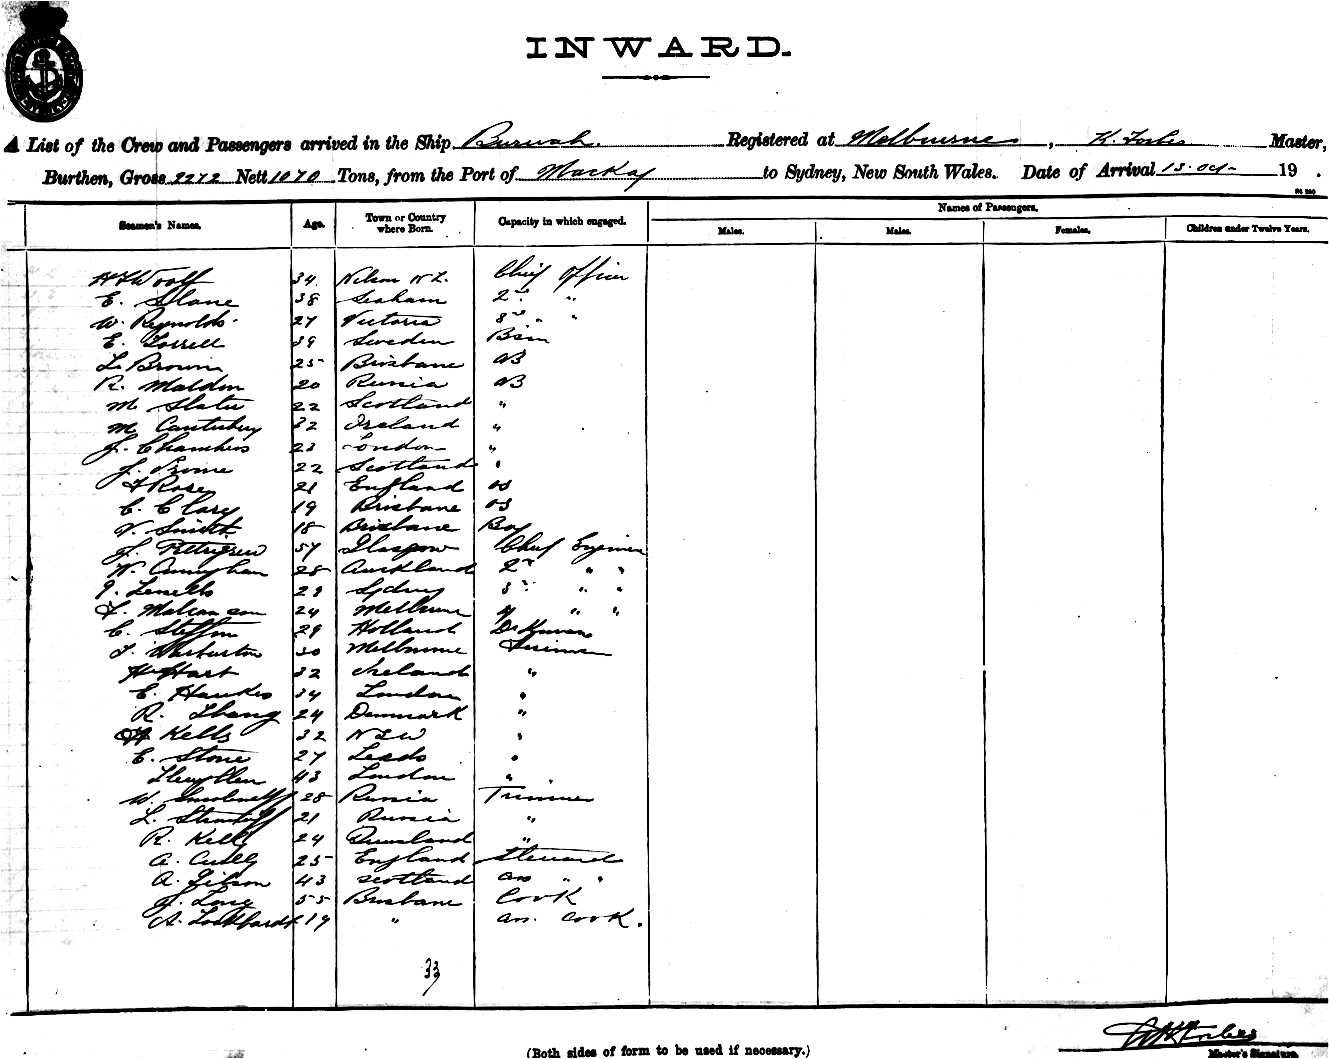 INWARD.
A List of the Crew and Passengers arrived in the Ship Burwah. Registered at Melbourne, K. Forbes Master,
Burthen, Gross 2272 Nett 1070 Tons, from the Port of Mackay to Sydney, New South Wales. Date of Arrival 13. Oct- 19 .
Seamen's Names. Age. Town or Country where Born. Capacity in which engaged. Names of Passengers.
Males. Males. Females. Children under Twelve Years.
H Woolf 34 Nelson N Z. Chief Officer
E. Slane 38 Seaham 2nd "
W. Reynolds 27 Victoria 3rd " "
E. Torrell 39 Sweden Bsn
L. Brown 25 Brisbane AB
R. Maldon 20 Russia AB
M. Slater 22 Scotland "
M Canterbury 32 Ireland "
J. Chambers 23 London "
J. 22 Scotland "
F Rose 21 England OS
C. Clary 19 Brisbane OS
V. Smith 18 Brisbane Boy
J. Pettigrew 57 Glasgow Chief Engineer
W. Cunningham 28 Auckland 2nd " "
29 Sydney 3rd " "
24 Melbourne 4 " "
C. Steffan 29 Holland Dkyman
J. Warburton 30 Melbourne Fireman
H Hart 32 Ireland "
E. Hawkes 34 London "
R. 24 Denmark "
H Kells 32 NSW "
E. Stone 27 Leeds "
Llewellen 43 London "
W. 28 Russia Trimmer
L. 21 Russia "
R. Kelly 24 Queensland "
A. Cully 25 England Steward
A. Gibson 43 Scotland ass " "
J. Long 55 Brisbane Cook
A. Lockhardt 19 " ass. Cook.
33
Master's Signature.
(Both sides of form to be used if necessary.)